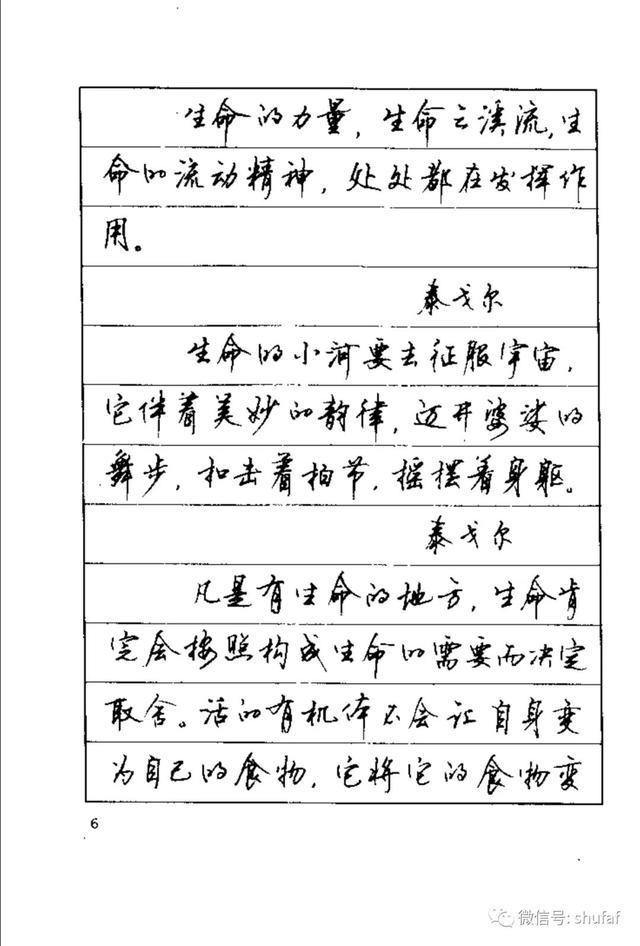 生命的力量，生命之溪流，生
命的流动精神，处处都在发挥作
用。
泰戈尔
生命的小河要去征服宇宙，
它伴着美妙的韵律，迈开婆娑的
舞步，扣击着拍节，摇摆着身躯。
泰戈尔
凡是有生命的地方，生命肯
定会按照构成生命的需要而决定
取舍。活的有机体不会让自身变
为自己的食物，它将它的食物变
6
微信号: shufaf